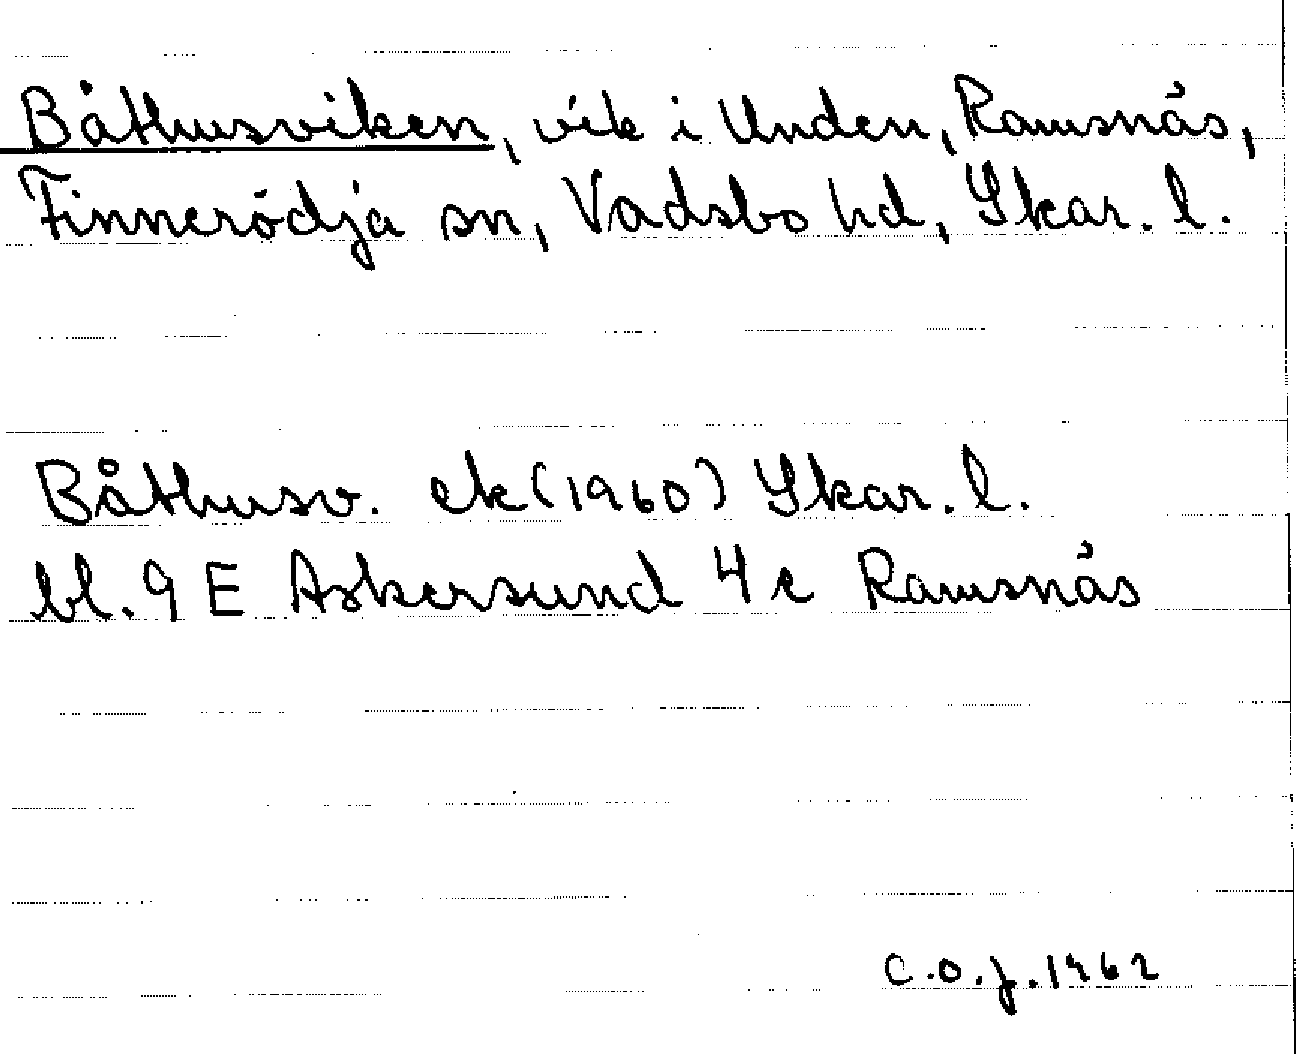 Båthusviken, vik i Unden, Ramsnäs,
Finnerödja sn, Vadsbo hd, Skar. l.
Båthusv. ek (1960) Skar. l.
bl. 9 E Askersund 4 c Ramsnäs
C.O.J. 1962